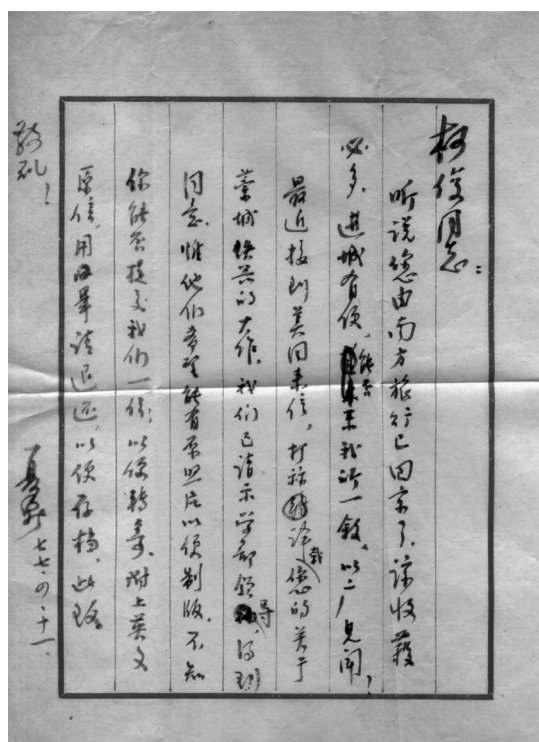 柯俊同志：
听说您由南方旅行已回京了，谅收获
必多。进城有便，能否来我所一叙，以广见闻，
最近接到美国来信，打算译载您的关于
藁城铁器的大作，我们已请示学部领导，得到
同意，惟他们希望能有原照片以便制版。不知
你能否提交我们一份，以便转寄。附上英文
原信，用毕请退还，以便存档，此致
敬礼！
夏鼐 七七.四.二十一.